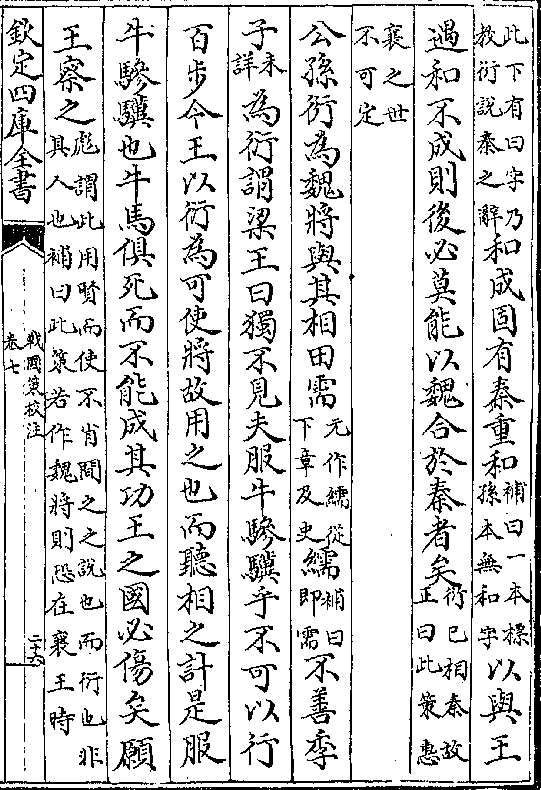 此下有曰字乃
教衍說秦之辭和成固有秦重和補曰一本標
孫本無和字以與王
遇和不成則後必莫能以魏合於秦者矣衍已相秦故
正曰此策惠
襄之世
不可定
公孫衍為魏將與其相田需元作繻從
下章及史繻補曰
即需不善季
子未
詳為衍謂梁王曰獨不見夫服牛驂驥乎不可以行
百步今王以衍為可使將故用之也而聽相之計是服
牛驂驥也牛馬俱死而不能成其功王之國必傷矣願
王察之彪謂此用賢而使不肖間之之說也而衍也非
其人也補曰此策若作魏將則恐在襄王時
欽定四庫全書
戰國策校注
卷七
二十六